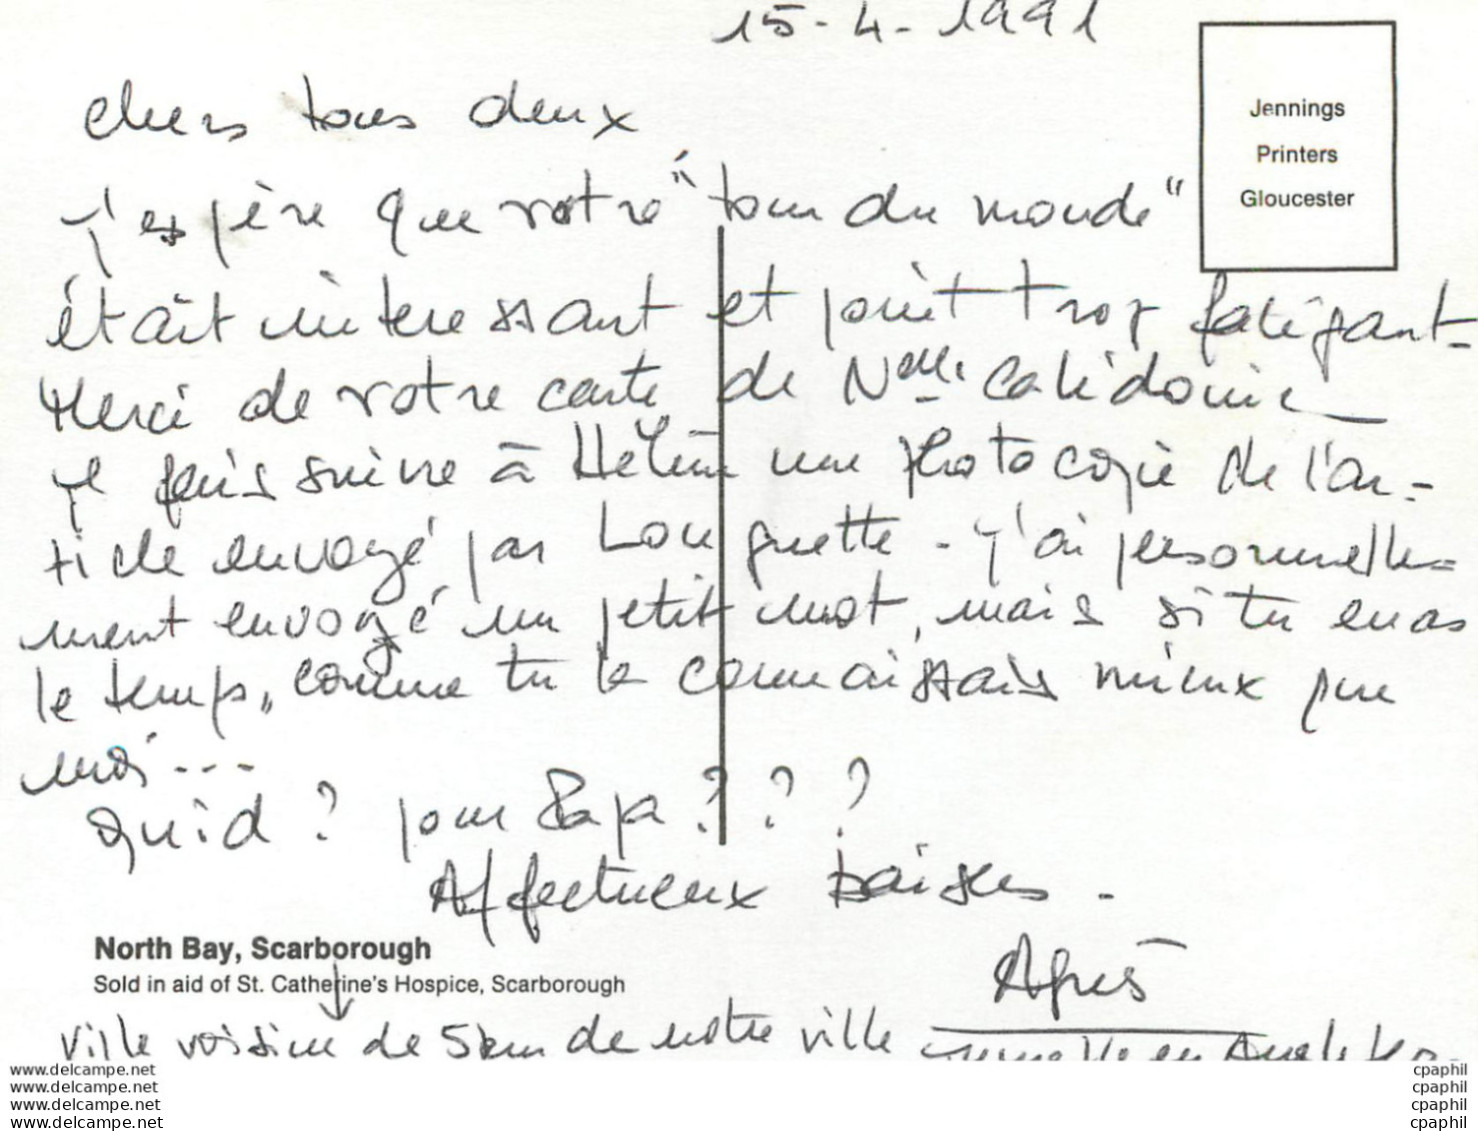 15-4-1991
Chers tous deux
Jennings
Printers
Gloucester
J'espère que votre "tour du monde"
était intéressant et point trop fatigant-
Merci de votre carte de Nelle Calédonie
Je fais suivre à Hélène une photocopie de l'ar-
ticle envoyé par Louguette - J'ai personnelle-
ment envoyé un petit mot, mais si tu en as
le temps, comme tu le connaissais mieux que
moi...
Quid ? pour Papa ? ? ?
Affectueux baisers -
North Bay, Scarborough
Sold in aid of St. Catherine's Hospice, Scarborough
Agnès
ville voisine de 5km de notre ville jumelle en
www.delcampe.net
www.delcampe.net
www.delcampe.net
www.delcampe.net
cpaphil
cpaphil
cpaphil
cpaphil